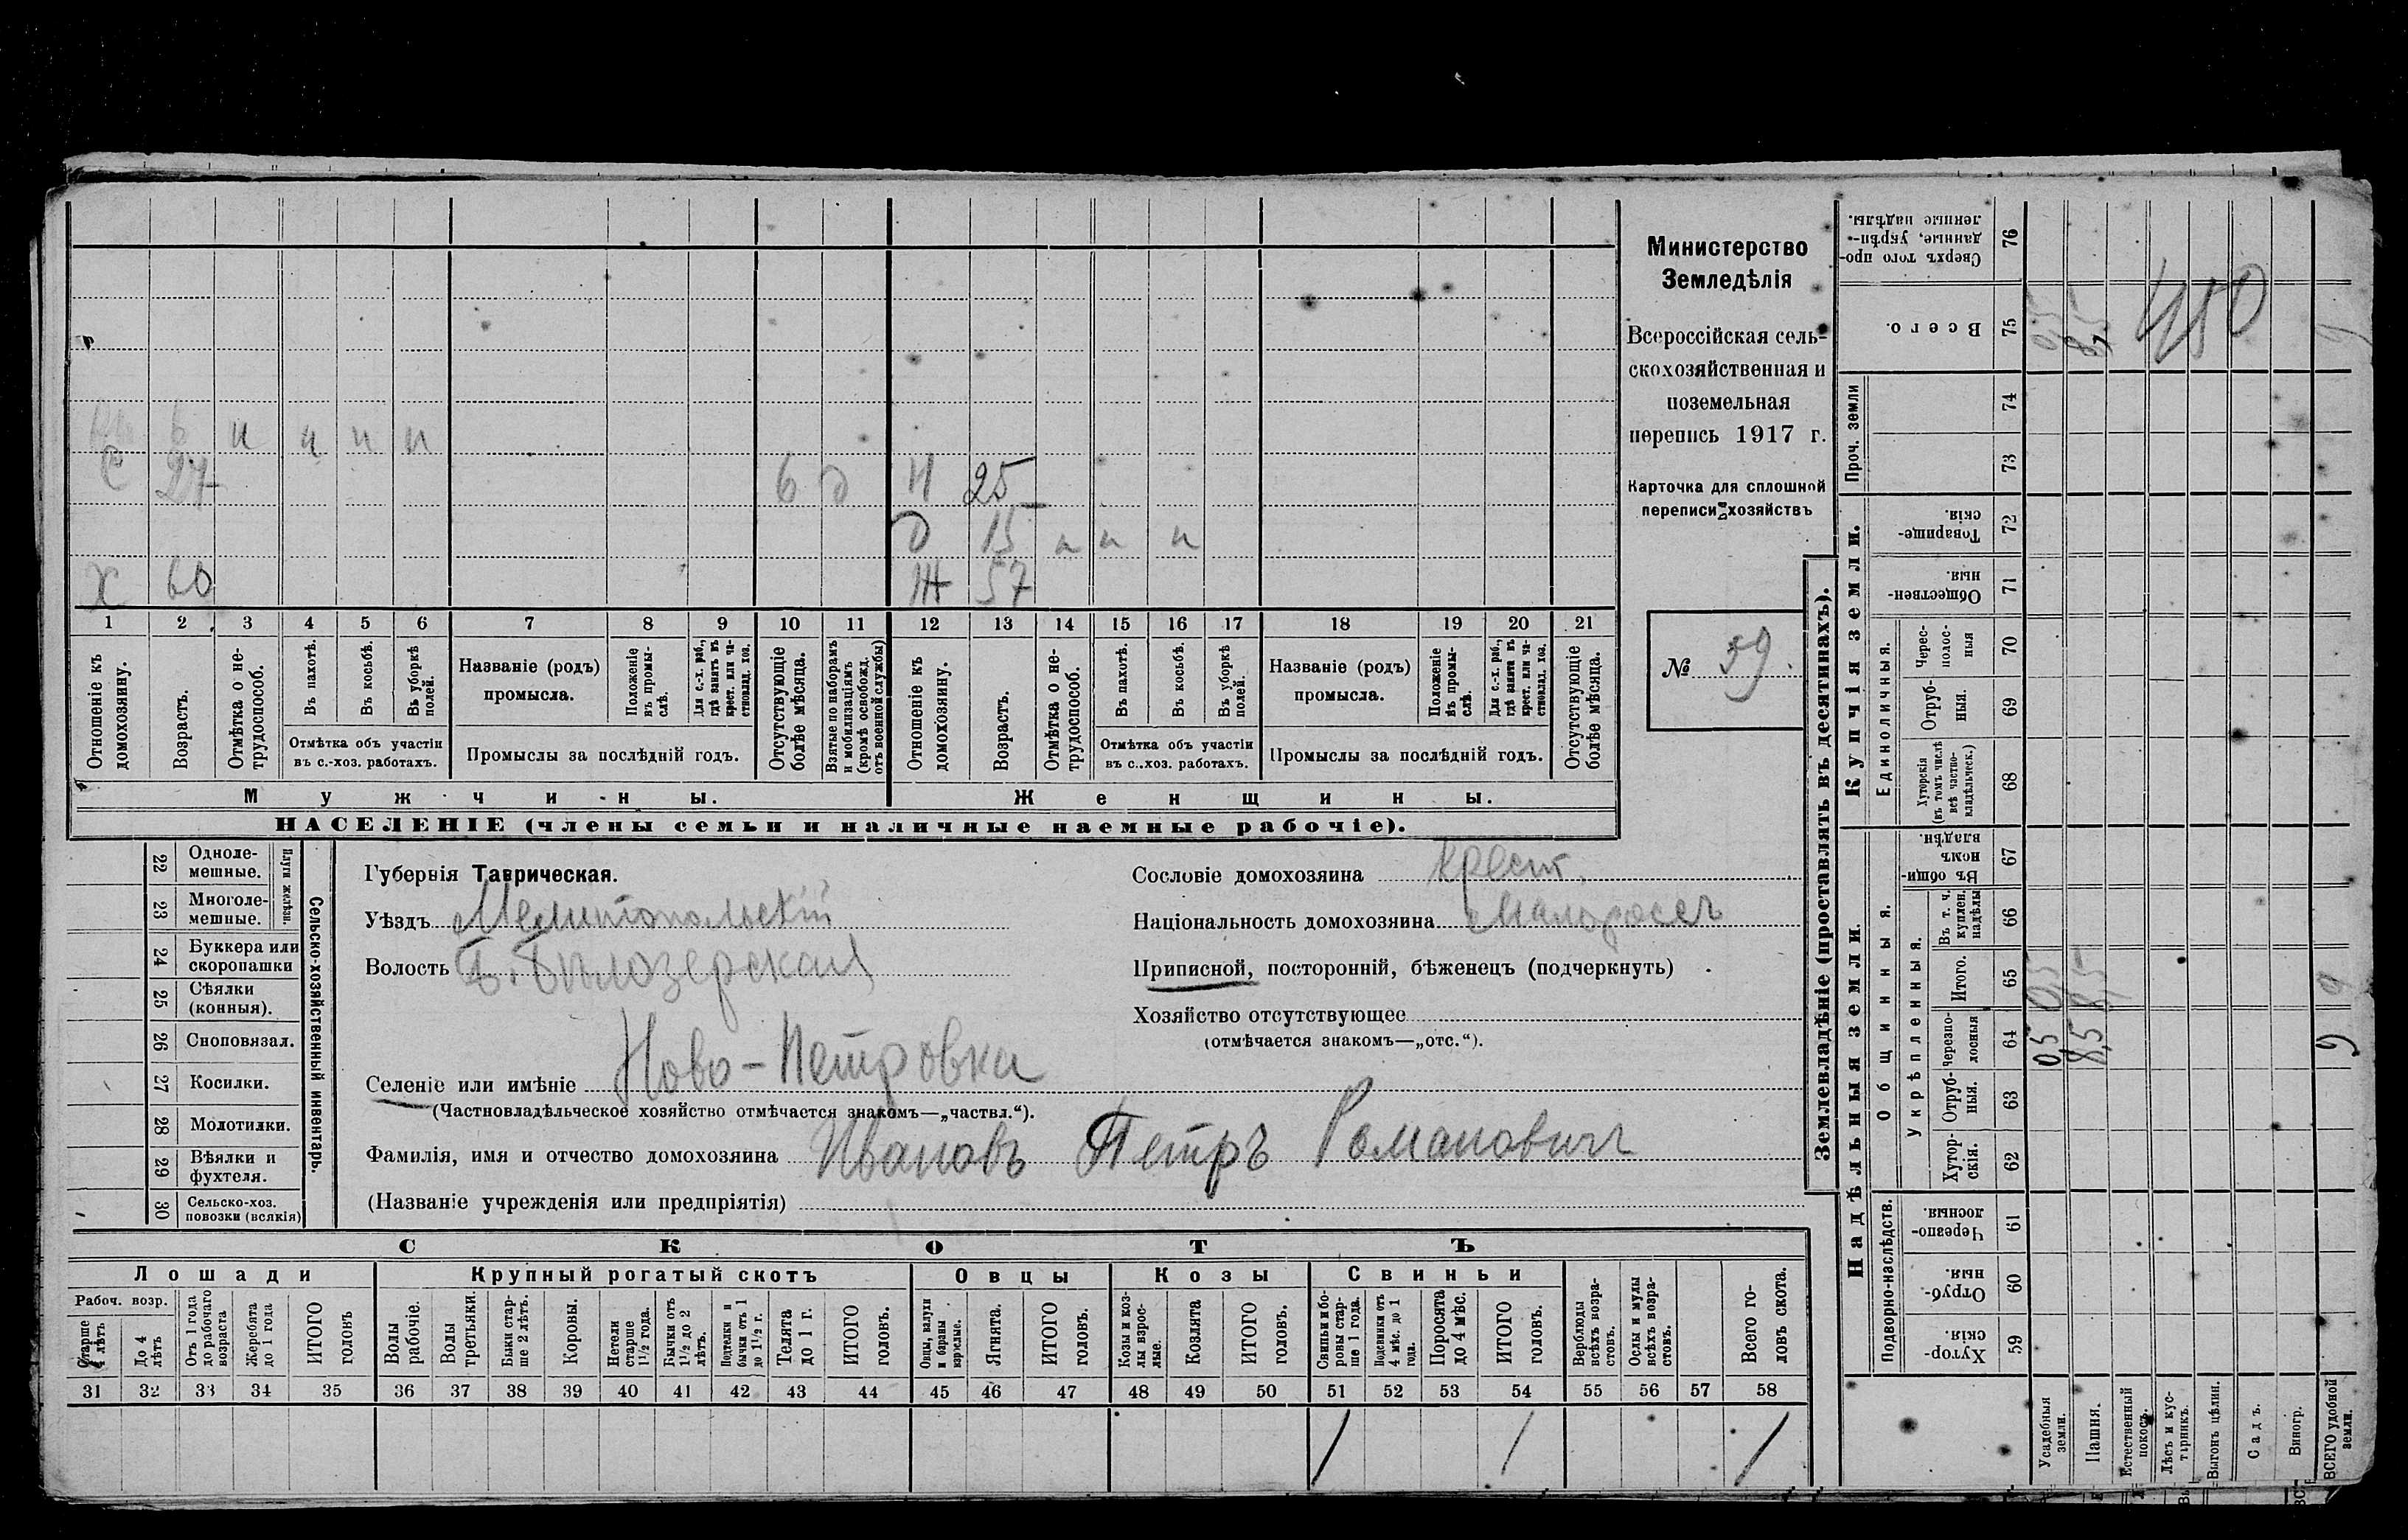 Министерство
Земледѣлія
Всероссійская сель-
скохозяйственная и
поземельная
перепись 1917 г.
Карточка для сплошной
переписи хозяйствъ
№ 59.
и и и и
С 27 6 д Н 25
д 15 и и и
Х 60 Ж 57
1 2 3 4 5 6 7 8 9 10 11 12 13 14 15 16 17 18 19 20 21
Отношеніе къ домохозяину.
Возрастъ.
Отмѣтка о не-трудоспособ.
Въ пахотѣ.
Въ косьбѣ.
Въ уборкѣ полей.
Отмѣтка объ участіи
въ с.-хоз. работахъ.
Названіе (родъ)
промысла.
Положеніе въ промы-слѣ.
Для с.-х. раб., гдѣ занятъ въ крест. или ча-стновлад. хоз.
Промыслы за послѣдній годъ.
Отсутствующіе болѣе мѣсяца.
Взятые по наборамъ и мобилизаціямъ (кромѣ освобожд. отъ военной службы)
Отношеніе къ домохозяину.
Возрастъ.
Отмѣтка о не-трудоспособ.
Въ пахотѣ.
Въ косьбѣ.
Въ уборкѣ полей.
Отмѣтка объ участіи
въ с..хоз. работахъ.
Названіе (родъ)
промысла.
Положеніе въ промы-слѣ.
Для с.-х. раб., гдѣ занята въ крест. или ча-стновлад. хоз.
Промыслы за послѣдній годъ.
Отсутствующіе болѣе мѣсяца.
Мужчины. Женщины.
НАСЕЛЕНІЕ (члены семьи и наличные наемные рабочіе).
Сельско-хозяйственный инвентарь.
Плуги желѣзн.
22 Одноле-мешные.
23 Многоле-мешные.
24 Буккера или скоропашки
25 Сѣялки (конныя).
26 Сноповязал.
27 Косилки.
28 Молотилки.
29 Вѣялки и фухтеля.
30 Сельско-хоз. повозки (всякія)
Губернія Таврическая.
Уѣздъ Мелитопольскій
Волость Б. Бѣлозерская
Селеніе или имѣніе Ново-Петровка
(Частновладѣльческое хозяйство отмѣчается знакомъ—„частвл.“).
Фамилія, имя и отчество домохозяина Ивановъ Петръ Романович
(Названіе учрежденія или предпріятія)
Сословіе домохозяина Крест.
Національность домохозяина Малоросс
Приписной, посторонній, бѣженецъ (подчеркнуть)
Хозяйство отсутствующее
(отмѣчается знакомъ—„отс.“).
СКОТЪ
Лошади Крупный рогатый скотъ Овцы Козы Свиньи
Рабоч. возр.
Старше 4 лѣтъ
До 4 лѣтъ
Отъ 1 года до рабочаго возраста
Жеребята до 1 года
ИТОГО головъ
Волы рабочіе.
Волы третьяки.
Быки стар-ше 2 лѣтъ.
Коровы.
Нетели старше 1½ года.
Бычки отъ 1½ до 2 лѣтъ.
Подтелки и бычки отъ 1 до 1½ г.
Телята до 1 г.
ИТОГО головъ.
Овцы, валухи и бараны взрослые.
Ягнята.
ИТОГО головъ.
Козы и коз-лы взрос-лые.
Козлята
ИТОГО головъ.
Свиньи и бо-ровы стар-ше 1 года.
Подсвинки отъ 4 мѣс. до 1 года.
Поросята до 4 мѣс.
ИТОГО головъ.
Верблюды всѣхъ возра-стовъ.
Ослы и мулы всѣхъ возра-стовъ.
Всего го-ловъ скота.
31 32 33 34 35 36 37 38 39 40 41 42 43 44 45 46 47 48 49 50 51 52 53 54 55 56 57 58
1 1 1
Землевладѣніе (проставлять въ десятинахъ).
Надѣльныя земли. Купчія земли. Проч. земли
Подворно-наслѣдств.
Общинныя.
Укрѣпленныя.
Единоличныя.
59 Хутор-скія.
60 Отруб-ныя.
61 Черезпо-лосныя
62 Хутор-скія.
63 Отруб-ныя.
64 Черезпо-лосныя 0,5 8,5 9
65 Итого. 0,5 8,5 9
66 Въ т. ч. куплен. надѣлы
67 Въ общин-номъ владѣн.
68 Хуторскія (въ томъ числѣ всѣ частно-владѣльческ.)
69 Отруб-ныя.
70 Черес-полос-ныя
71 Обществен-ныя.
72 Товарище-скія.
73
74
75 Всего. 0,5 8,5 450 9
76 Сверхъ того про-данные, укрѣп-ленные надѣлы.
Усадебныя земли.
Пашня.
Естественный покосъ.
Лѣсъ и кус-тарникъ.
Выгонъ цѣлин.
Садъ.
Виногр.
ВСЕГО удобной земли.